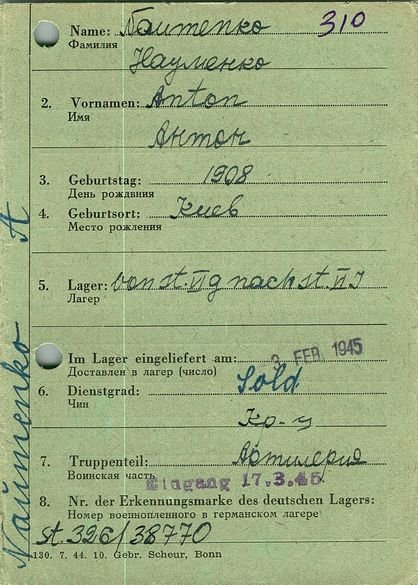 310
Name: Naumenko
Фамилия
Науменко
2. Vornamen: Anton
Имя
Антон
3. Geburtstag: 1908
День рождвния
4. Geburtsort: Киев
Место рождения
5. Lager: von st. VI g nach st. VI J
Лагер
Im Lager eingeliefert am: 3. FEB. 1945
Доставлен в лагер (число)
6. Dienstgrad: Sold
Чин
7. Truppenteil: Артилерия
Воинская часть
Eingang 17.3.45
8. Nr. der Erkennungsmarke des deutschen Lagers:
Номер военнопленного в германском лагере
st. 326/38770
130. 7. 44. 10. Gebr. Scheur, Bonn
Naumenko A